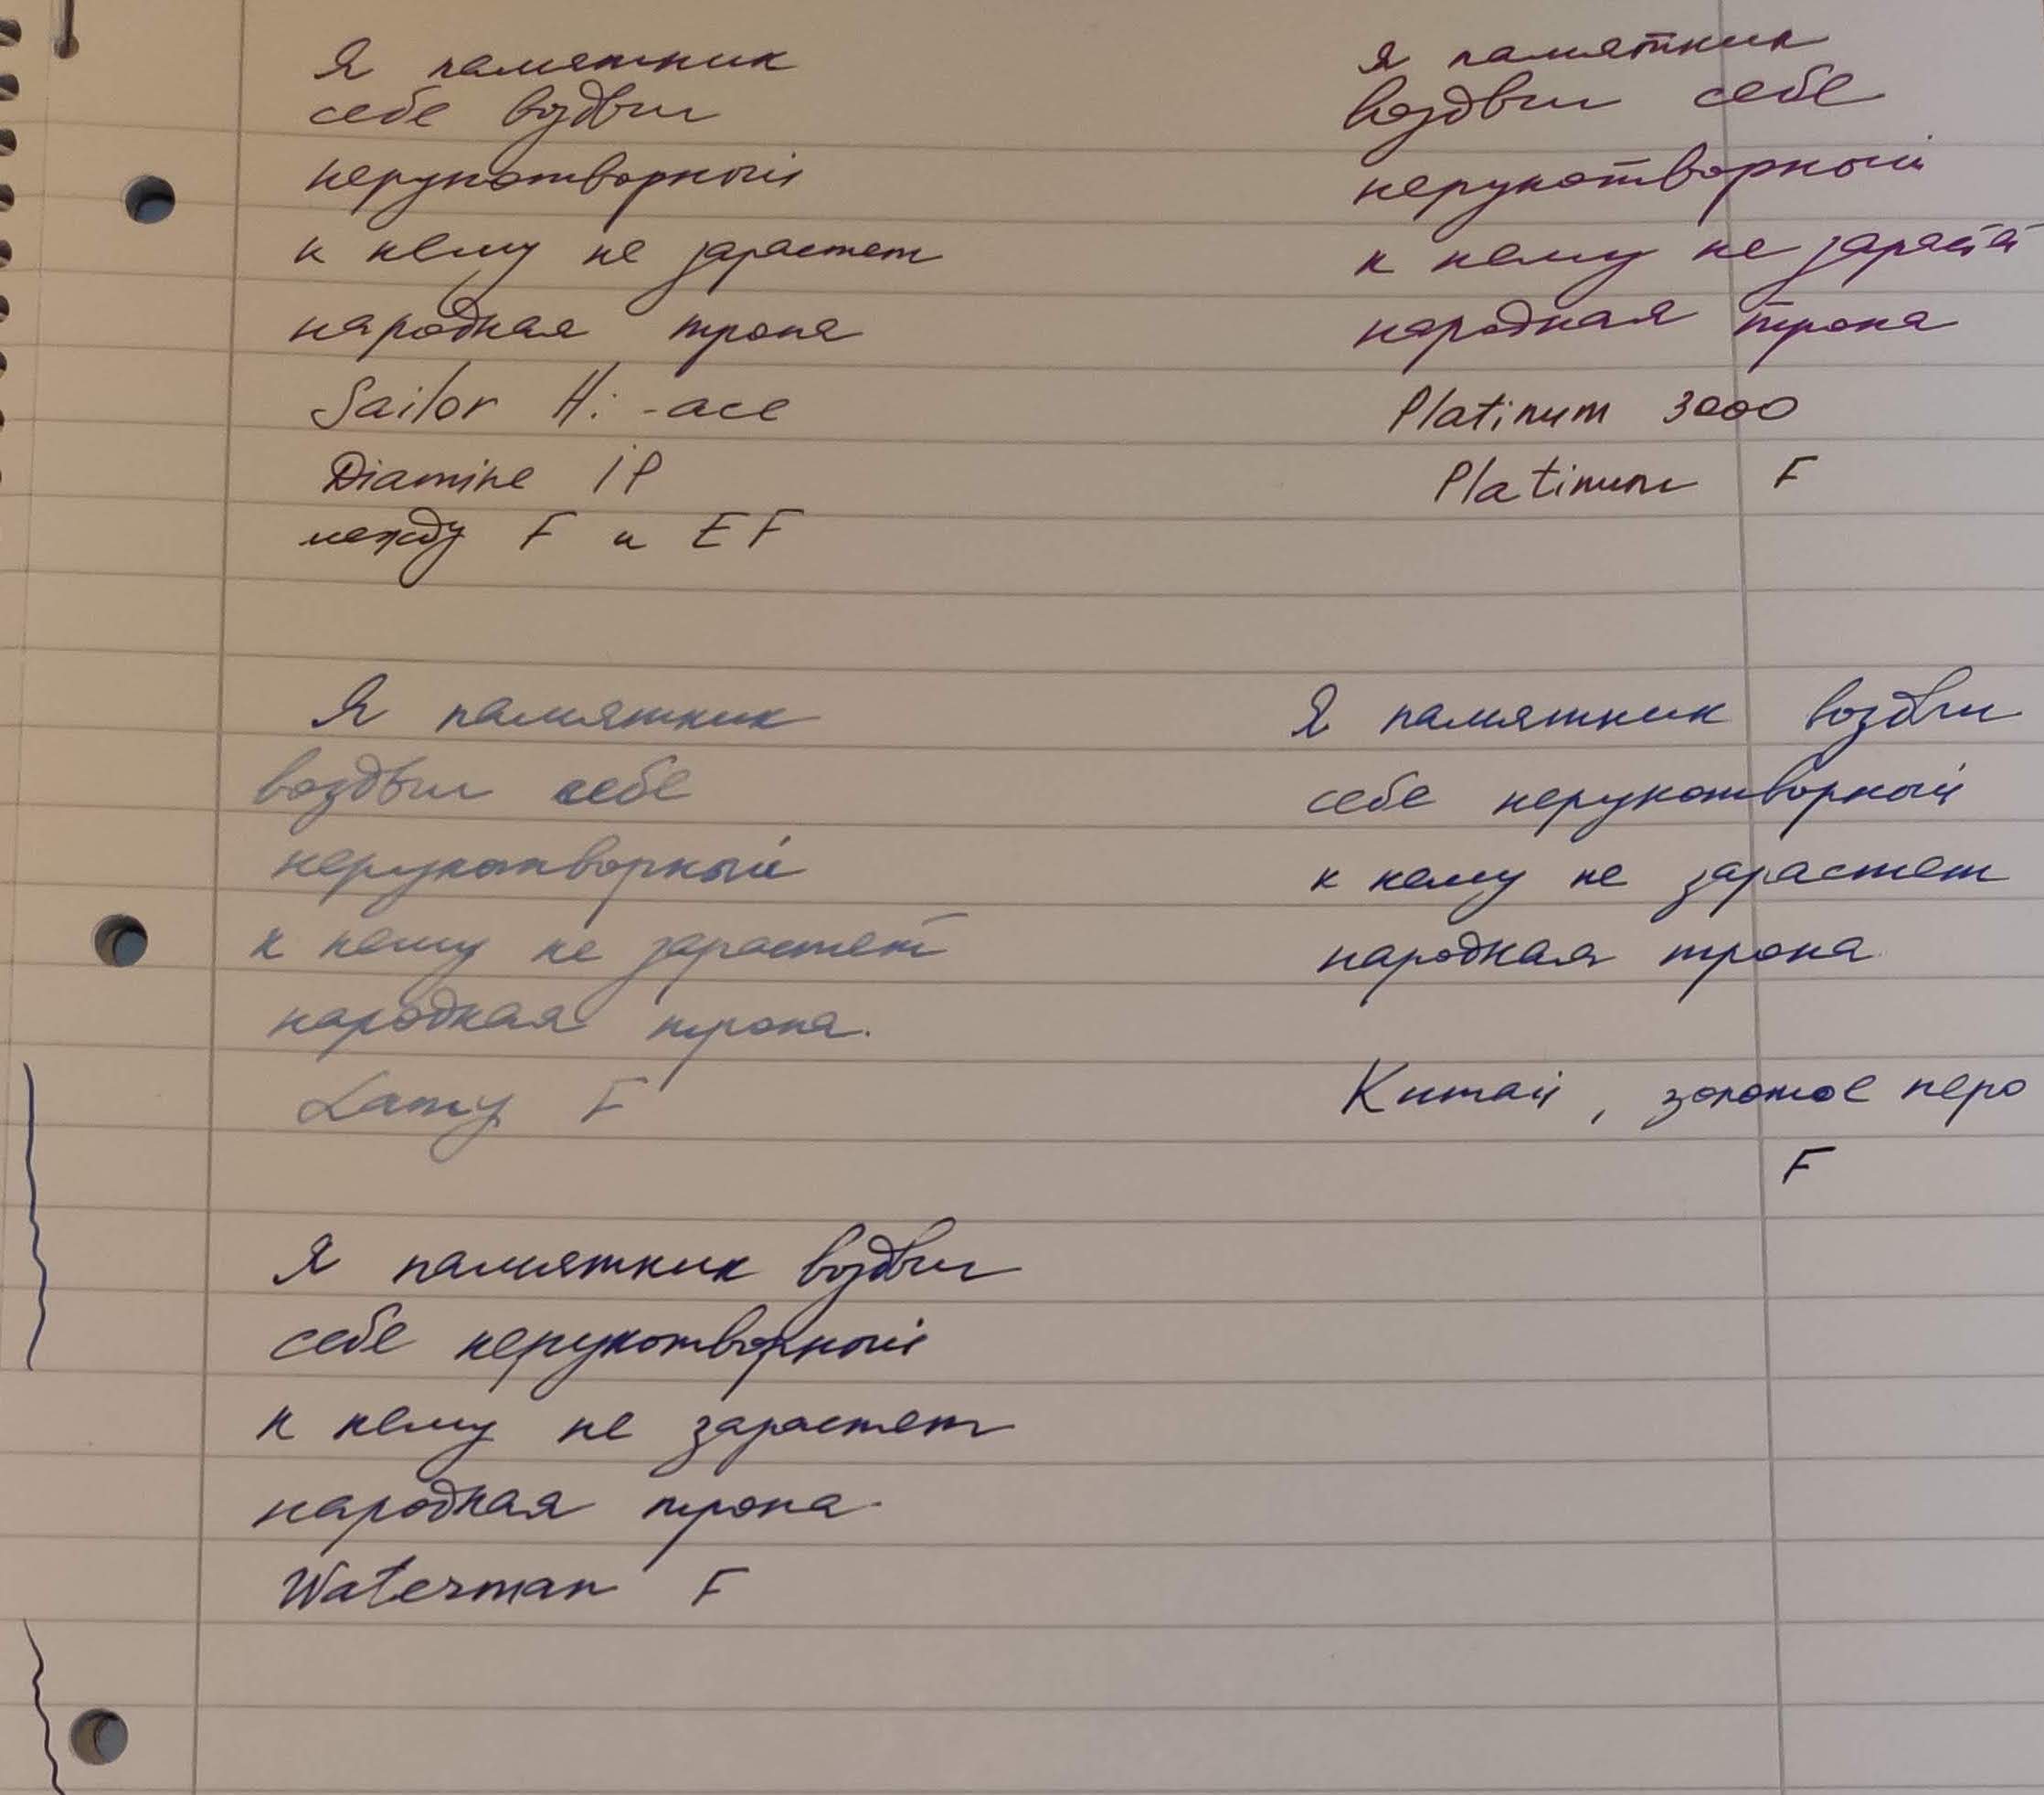 Я памятник
себе воздвиг
нерукотворный
к нему не зарастет
народная тропа
Sailor Hi-ace
Diamine IP
между F и EF
Я памятник
воздвиг себе
нерукотворный
к нему не зарастет
народная тропа
Platinum 3000
Platinum F
Я памятник
воздвиг себе
нерукотворный
к нему не зарастет
народная тропа.
Lamy F
Я памятник воздвиг
себе нерукотворный
к нему не зарастет
народная тропа.
Китай, золотое перо
F
Я памятник воздвиг
себе нерукотворный
к нему не зарастет
народная тропа.
Waterman F